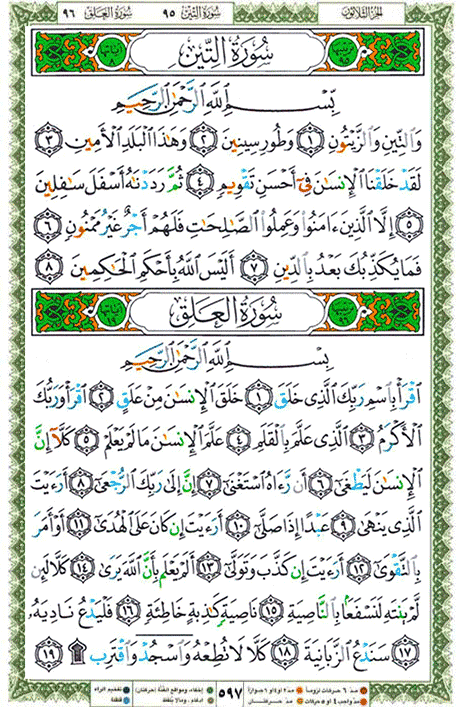 الجزء الثلاثون سورة التين ٩٥ سورة العلق ٩٦
سُورَةُ التِّينِ
بِسْمِ اللَّهِ الرَّحْمَٰنِ الرَّحِيمِ
وَالتِّينِ وَالزَّيْتُونِ ١ وَطُورِ سِينِينَ ٢ وَهَٰذَا الْبَلَدِ الْأَمِينِ ٣
لَقَدْ خَلَقْنَا الْإِنسَٰنَ فِي أَحْسَنِ تَقْوِيمٍ ٤ ثُمَّ رَدَدْنَٰهُ أَسْفَلَ سَٰفِلِينَ
٥ إِلَّا الَّذِينَ ءَامَنُوا وَعَمِلُوا الصَّٰلِحَٰتِ فَلَهُمْ أَجْرٌ غَيْرُ مَمْنُونٍ ٦
فَمَا يُكَذِّبُكَ بَعْدُ بِالدِّينِ ٧ أَلَيْسَ اللَّهُ بِأَحْكَمِ الْحَٰكِمِينَ ٨
سُورَةُ الْعَلَقِ
بِسْمِ اللَّهِ الرَّحْمَٰنِ الرَّحِيمِ
اقْرَأْ بِاسْمِ رَبِّكَ الَّذِي خَلَقَ ١ خَلَقَ الْإِنسَٰنَ مِنْ عَلَقٍ ٢ اقْرَأْ وَرَبُّكَ
الْأَكْرَمُ ٣ الَّذِي عَلَّمَ بِالْقَلَمِ ٤ عَلَّمَ الْإِنسَٰنَ مَا لَمْ يَعْلَمْ ٥ كَلَّا إِنَّ
الْإِنسَٰنَ لَيَطْغَىٰ ٦ أَن رَّءَاهُ اسْتَغْنَىٰ ٧ إِنَّ إِلَىٰ رَبِّكَ الرُّجْعَىٰ ٨ أَرَءَيْتَ
الَّذِي يَنْهَىٰ ٩ عَبْدًا إِذَا صَلَّىٰ ١٠ أَرَءَيْتَ إِن كَانَ عَلَى الْهُدَىٰ ١١ أَوْ أَمَرَ
بِالتَّقْوَىٰ ١٢ أَرَءَيْتَ إِن كَذَّبَ وَتَوَلَّىٰ ١٣ أَلَمْ يَعْلَم بِأَنَّ اللَّهَ يَرَىٰ ١٤ كَلَّا لَئِن
لَّمْ يَنتَهِ لَنَسْفَعًا بِالنَّاصِيَةِ ١٥ نَاصِيَةٍ كَٰذِبَةٍ خَاطِئَةٍ ١٦ فَلْيَدْعُ نَادِيَهُ
١٧ سَنَدْعُ الزَّبَانِيَةَ ١٨ كَلَّا لَا تُطِعْهُ وَاسْجُدْ وَاقْتَرِب ۩ ١٩
٥٩٧